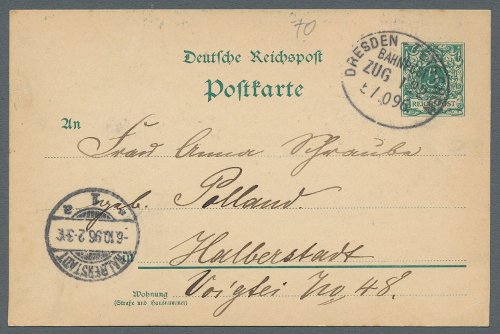 70
Deutsche Reichspost
Postkarte
DRESDEN
BAHNPOST
ZUG 1
5 / .096
REICHSPOST
An
Frau Anna Schraube
geb. Polland.
Halberstadt
Voigtei No 48.
Wohnung
(Straße und Hausnummer)
1
-6.10.96.2-3
HALBERSTADT